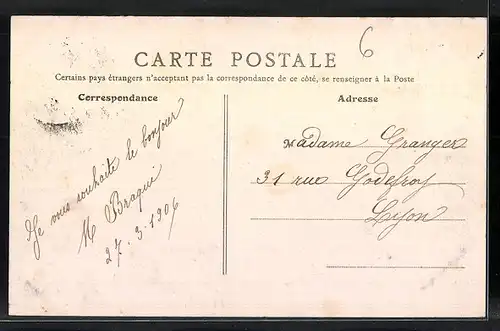 6
CARTE POSTALE
Certains pays étrangers n'acceptant pas la correspondance de ce côté, se renseigner à la Poste
Correspondance
Je vous souhaite le bonjour
M Braqui
27-3-1906
Adresse
Madame Granger
31 rue Godefroy
Lyon